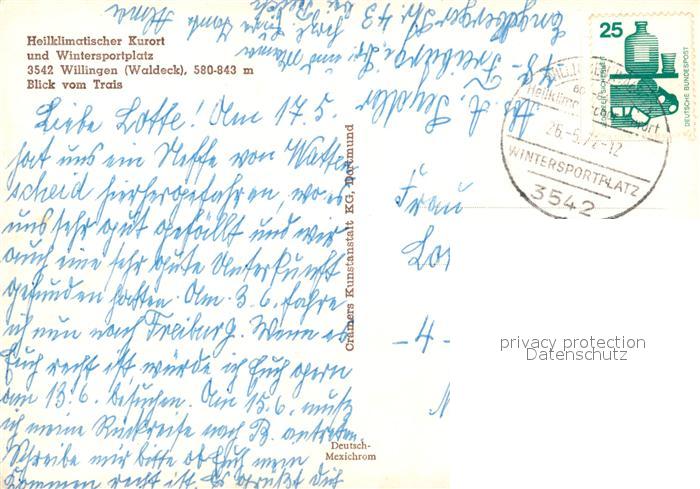 Heilklimatischer Kurort
und Wintersportplatz
3542 Willingen (Waldeck), 580-843 m
Blick vom Trais
Liebe Lotte! Am 17.5.
hat uns ein Neffe von Watten
scheid hierhergefahren, wo es
uns sehr gut gefällt und wir
auch eine sehr gute Unterkunft
gefunden hatten. Am 3.6. fahre
ich nun nach Freiburg. Wenn es
Euch recht ist würde ich Euch gern
am 13.6. besuchen. Am 15.6. muß
ich meine Rückreise nach B. antreten.
Schreibe mir bitte ob Euch mein
Kommen recht ist. Es grüßt dich
Cramers Kunstanstalt KG, Dortmund
Deutsch-
Mexichrom
Abs. A.
78 Freiburg
43
25
DEUTSCHE BUNDESPOST
26.-5.72-12
WINTERSPORTPLATZ
3542
Frau
Lo
-4-
privacy protection
Datenschutz